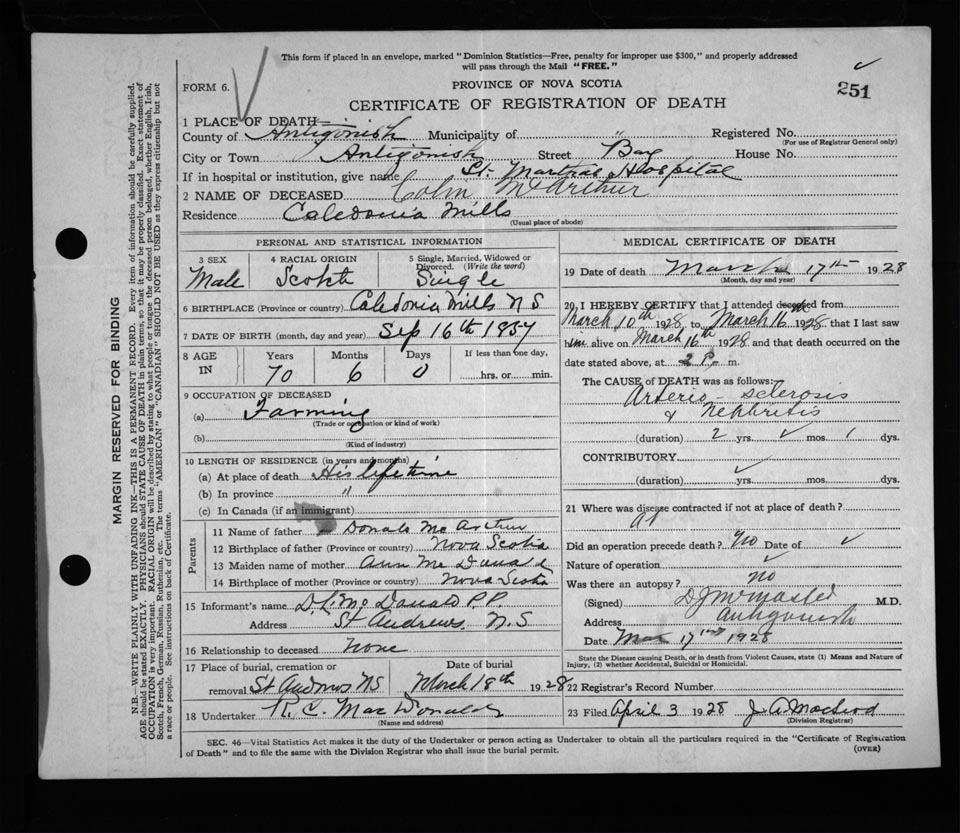 This form if placed in an envelope, marked "Dominion Statistics—Free, penalty for improper use $300," and properly addressed
will pass through the Mail "FREE."
FORM 6.
PROVINCE OF NOVA SCOTIA
251
CERTIFICATE OF REGISTRATION OF DEATH
1 PLACE OF DEATH—
County of Antigonish Municipality of " Registered No.
(For use of Registrar General only)
City or Town Antigonish Street Bay House No.
If in hospital or institution, give name St. Marthas Hospital
2 NAME OF DECEASED Colin McArthur
Residence Caledonia Mills
(Usual place of abode)
PERSONAL AND STATISTICAL INFORMATION
3 SEX 4 RACIAL ORIGIN 5 Single, Married, Widowed or
Divorced. (Write the word)
Male Scotch Single
6 BIRTHPLACE (Province or country) Caledonia Mills N S
7 DATE OF BIRTH (month, day and year) Sep 16th 1857
8 AGE IN Years Months Days If less than one day,
70 6 0 hrs. or min.
9 OCCUPATION OF DECEASED
(a) Farming
(Trade or occupation or kind of work)
(b)
(Kind of industry)
10 LENGTH OF RESIDENCE (in years and months)
(a) At place of death His lifetime
(b) In province "
(c) In Canada (if an immigrant)
Parents
11 Name of father Donald McArthur
12 Birthplace of father (Province or country) Nova Scotia
13 Maiden name of mother Ann McDonald
14 Birthplace of mother (Province or country) Nova Scotia
15 Informant's name D. L. McDonald P.P.
Address St Andrews. N.S
16 Relationship to deceased None
17 Place of burial, cremation or Date of burial
removal St Andrews NS March 18th 1928
18 Undertaker R. C. MacDonald
(Name and address)
MEDICAL CERTIFICATE OF DEATH
19 Date of death March 17th 1928
(Month, day and year)
20 I HEREBY CERTIFY that I attended deceased from
March 10th 1928, to March 16th 1928 that I last saw
him alive on March 16th 1928 and that death occurred on the
date stated above, at 2 P. m.
The CAUSE of DEATH was as follows:
Arterio-sclerosis
& Nephritis
(duration) 2 yrs. mos. 1 dys.
CONTRIBUTORY
(duration) yrs. mos. dys.
21 Where was disease contracted if not at place of death?
Did an operation precede death? No Date of
Nature of operation
Was there an autopsy? no
(Signed) M.D.
Address Antigonish
Date Mar 17 1928
State the Disease causing Death, or in death from Violent Causes, state (1) Means and Nature of
Injury, (2) whether Accidental, Suicidal or Homicidal.
22 Registrar's Record Number
23 Filed April 3 1928 J. A. Macleod
(Division Registrar)
SEC. 46—Vital Statistics Act makes it the duty of the Undertaker or person acting as Undertaker to obtain all the particulars required in the "Certificate of Registration
of Death" and to file the same with the Division Registrar who shall issue the burial permit.
(OVER)
MARGIN RESERVED FOR BINDING
N.B.—WRITE PLAINLY WITH UNFADING INK—THIS IS A PERMANENT RECORD. Every item of information should be carefully supplied.
AGE should be stated EXACTLY. PHYSICIANS should STATE CAUSE OF DEATH in plain terms, so that it may be properly classified. Exact statement of
OCCUPATION is very important. RACIAL ORIGIN will be described by stating to what people or tongue the deceased person belonged, whether English, Irish,
Scotch, French, German, Russian, Ruthenian, etc. The terms "AMERICAN" or "CANADIAN" SHOULD NOT BE USED as they express citizenship but not
a race or people. See instructions on back of Certificate.